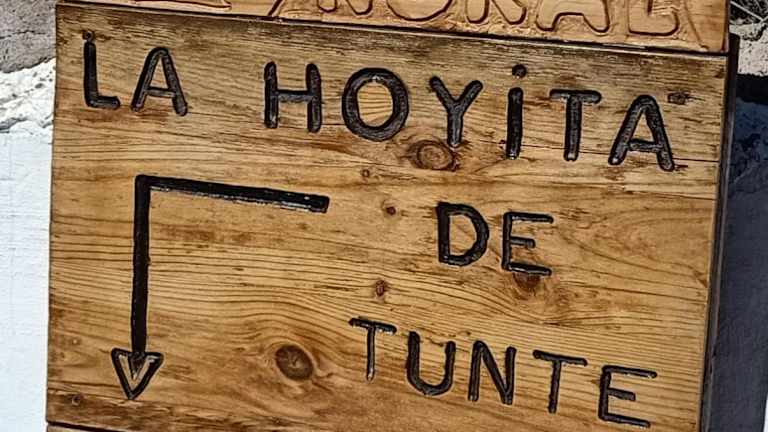 LA HOYiTA
DE
TUNTE